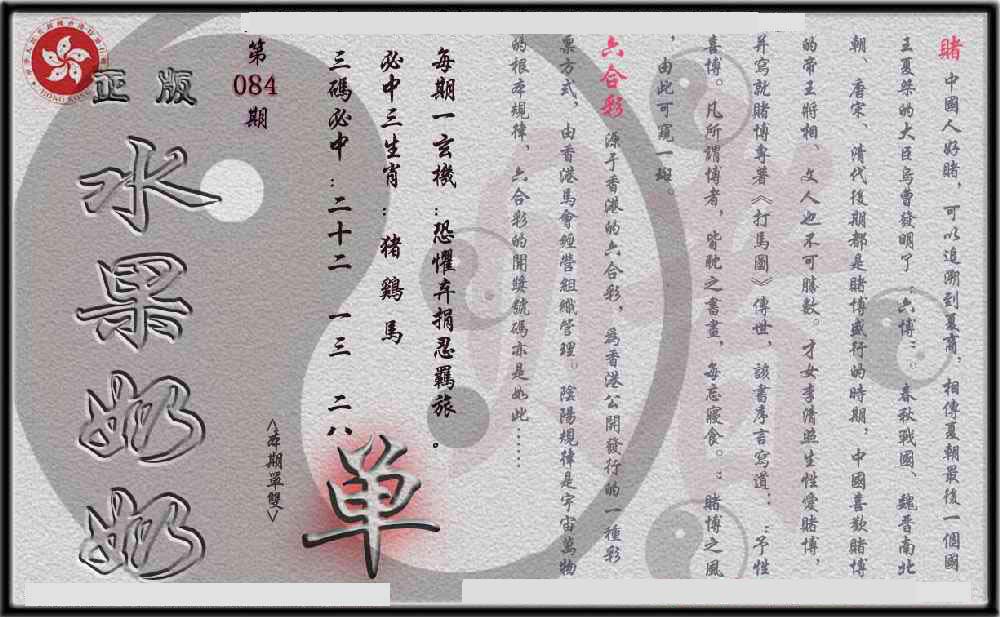 賭 中國人好賭，可以追溯到夏商．相傳夏朝最後一個國
王夏桀的大臣烏曹發明了：六博：．春秋戰國、魏晋南北
朝、唐宋、清代後期都是賭博盛行的時期，中國喜歡賭博
的帝王將相、文人也不可勝數。才女李清照生性愛賭博，
并寫就賭博專著《打馬圖》傳世，該書序言寫道：：予性
喜博。凡所謂博者，皆耽之晝畫，每忘寢食。：賭博之風
，由此可窺一斑。
六合彩 源于香港的六合彩，爲香港公開發行的一種彩
票方式，由香港馬會經營組織管理。陰陽規律是宇宙萬物
的根本規律，六合彩的開獎號碼亦是如此......
每期一玄機：恐懼弃捐忍羈旅。
必中三生肖：猪鷄馬
三碼必中：二十二 一三 二八
單
<本期單雙>
第084期
正版
水果奶奶